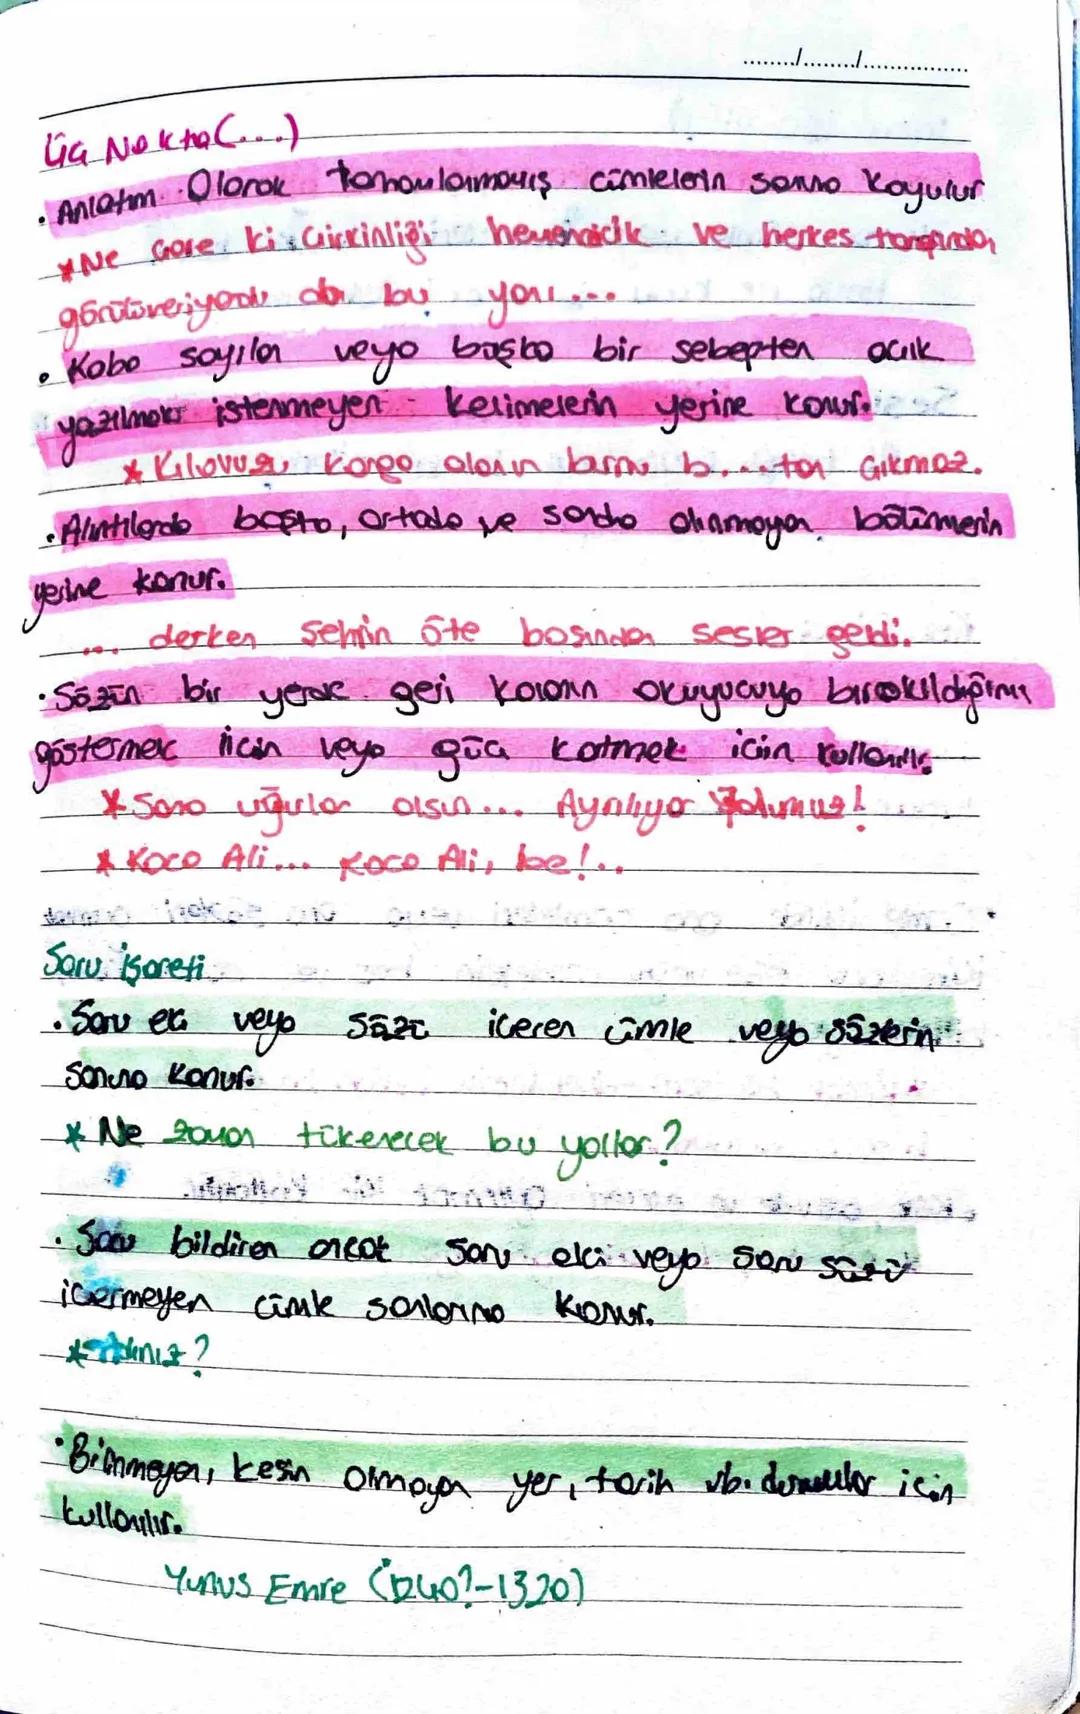 ......../......../...............
Üç Nokta (...)
. Anlatım Olarak tamamlanmamış cümlelerin sonuna koyulur
* Ne Gare ki Çirkinliği hemencecik ve herkes tarafından
görülüveriyordu bu yanı...
. Kaba sayılan veya başka bir sebepten açık
yazılmak istenmeyen kelimelerin yerine konur.
* Kılavuzu karga olanın burnu b...tan çıkmaz.
. Alıntılarda başta, ortada ve sonda olunmayan bölümlerin
yerine konur.
... derken şehrin öte başından sesler geldi.
. Sözün bir yerde geri kalanın okuyucuya bırakıldığını
göstermek için veya güç katmak için kullanılır.
* Sana uğurlar olsun... Ayrılıyor Yolumuz!
* Koca Ali... Koca Ali, be!..
Soru işareti
. Soru eki veya sözü içeren cümle veya sözlerin
sonuna konur.
* Ne zaman tükenecek bu yollar?
. Soru bildiren ancak soru eki veya soru sözü
içermeyen cümle sonlarına konur.
* Adınız?
. Bilinmeyen, kesin olmayan yer, tarih vb. durumlar için
kullanılır.
Yunus Emre (1240?-1320)